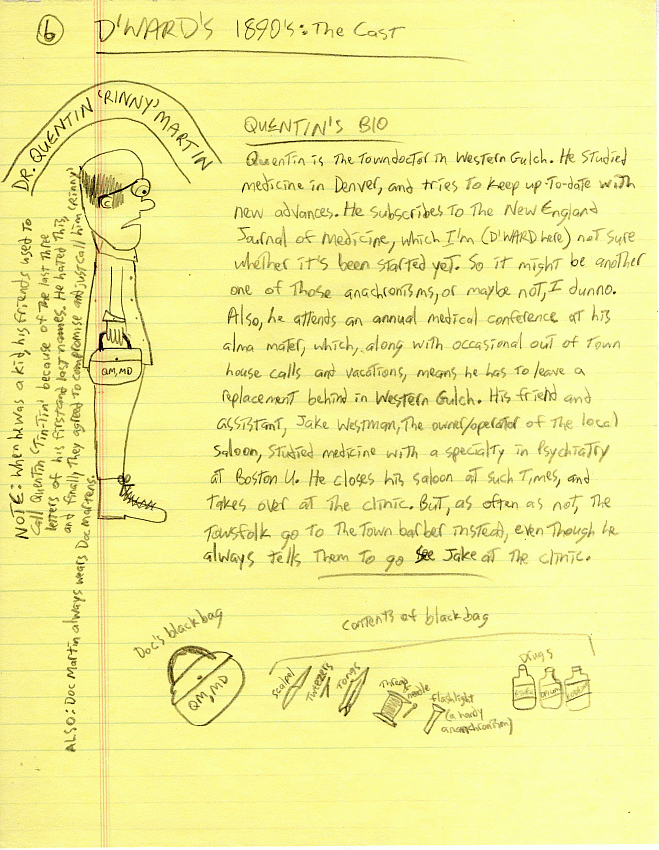 6
D'WARD'S 1890's: The Cast
DR. QUENTIN 'RINNY' MARTIN
QUENTIN'S BIO
Quentin is the town doctor in Western Gulch. He studied
medicine in Denver, and tries to keep up-to-date with
new advances. He subscribes to the New England
Journal of Medicine, which I'm (D'WARD here) not sure
whether it's been started yet. So it might be another
one of those anachronisms, or maybe not, I dunno.
Also, he attends an annual medical conference at his
alma mater, which, along with occasional out of town
house calls and vacations, means he has to leave a
replacement behind in Western Gulch. His friend and
assistant, Jake Westman, the owner/operator of the local
Saloon, studied medicine with a specialty in Psychiatry
at Boston U. He closes his saloon at such times, and
takes over at the clinic. But, as often as not, the
Towsfolk go to the town barber instead, even though he
always tells them to go see Jake at the clinic.
NOTE: When he was a kid, his friends used to
call Quentin 'Tin-Tin' because of the last three
letters of his first and last names. He hated this,
and finally they agreed to compromise and just call him 'Rinny'
ALSO: Doc Martin always wears Doc Martens.
QM, MD
Doc's black bag
QM, MD
Contents of black bag
Scalpel
Tweezers
Tongs
Thread
needle
Flashlight
(a handy
anachronism)
Drugs